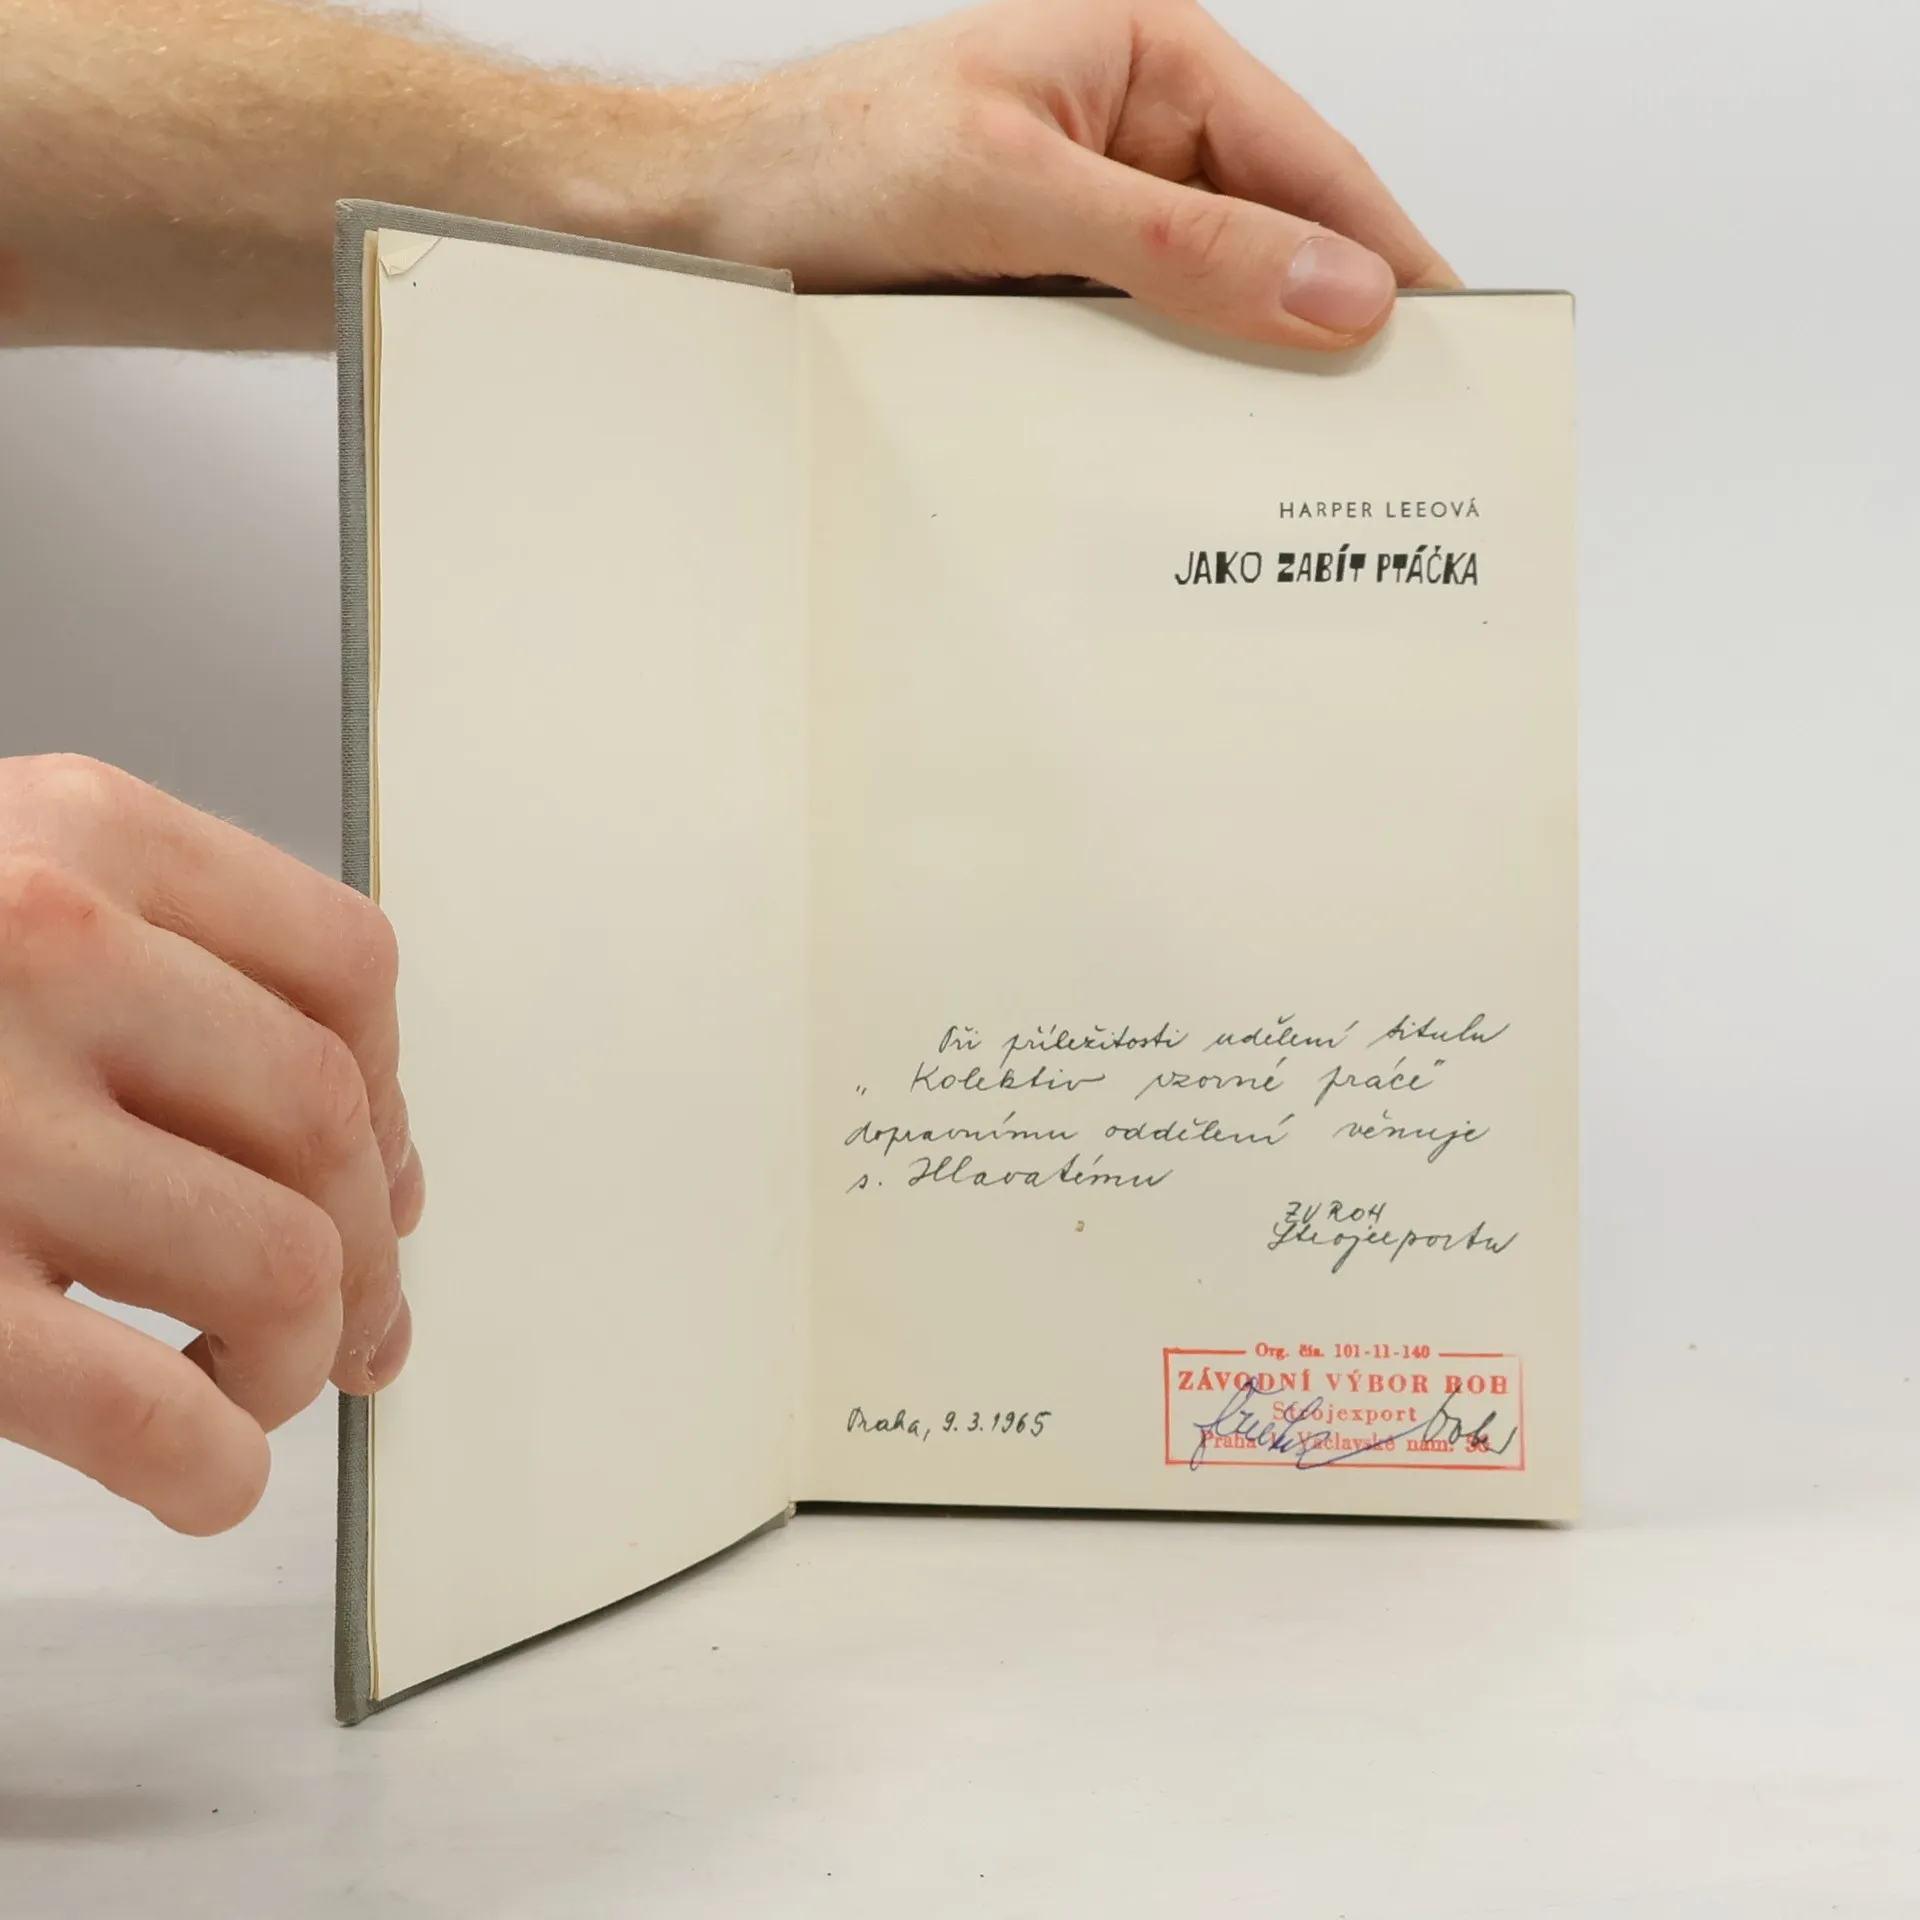 HARPER LEEOVÁ
JAKO ZABÍT PTÁČKA
Při příležitosti udělení titulu
„Kolektiv vzorné práce"
dopravnímu oddělení věnuje
s. Hlavatému
ZV ROH
Strojexportu
Praha, 9.3.1965
Org. čís. 101-11-140
ZÁVODNÍ VÝBOR ROH
Strojexport
Praha Václavské nám.